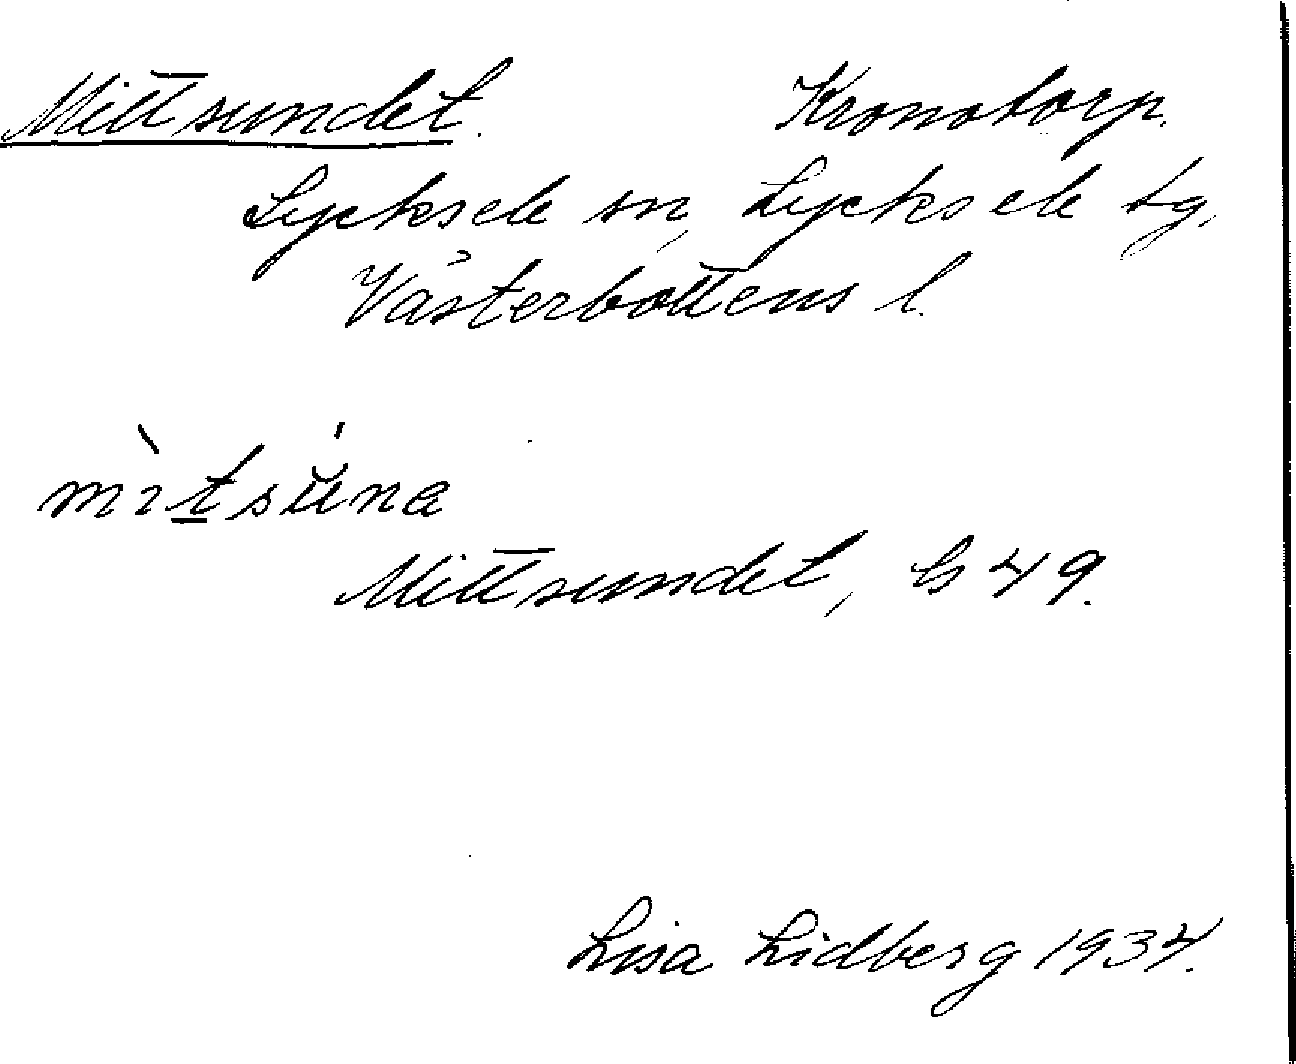 Mittsundet. Kronotorp.
Lycksele sn, Lycksele tg,
Västerbottens l.
Mittsundet, G 49.
Lisa Lidberg 1934.